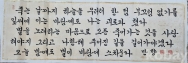 죽는 날까지 하늘을 우러러 한 점 부끄럼 없기를
잎새에 이는 바람에도 나는 괴로워 했다
별을 노래하는 마음으로 모든 죽어가는 것을 사랑
해야지 그리고 나한테 주어진 길을 걸어가야겠다
오늘 밤에도 별이 바람에 스치운다